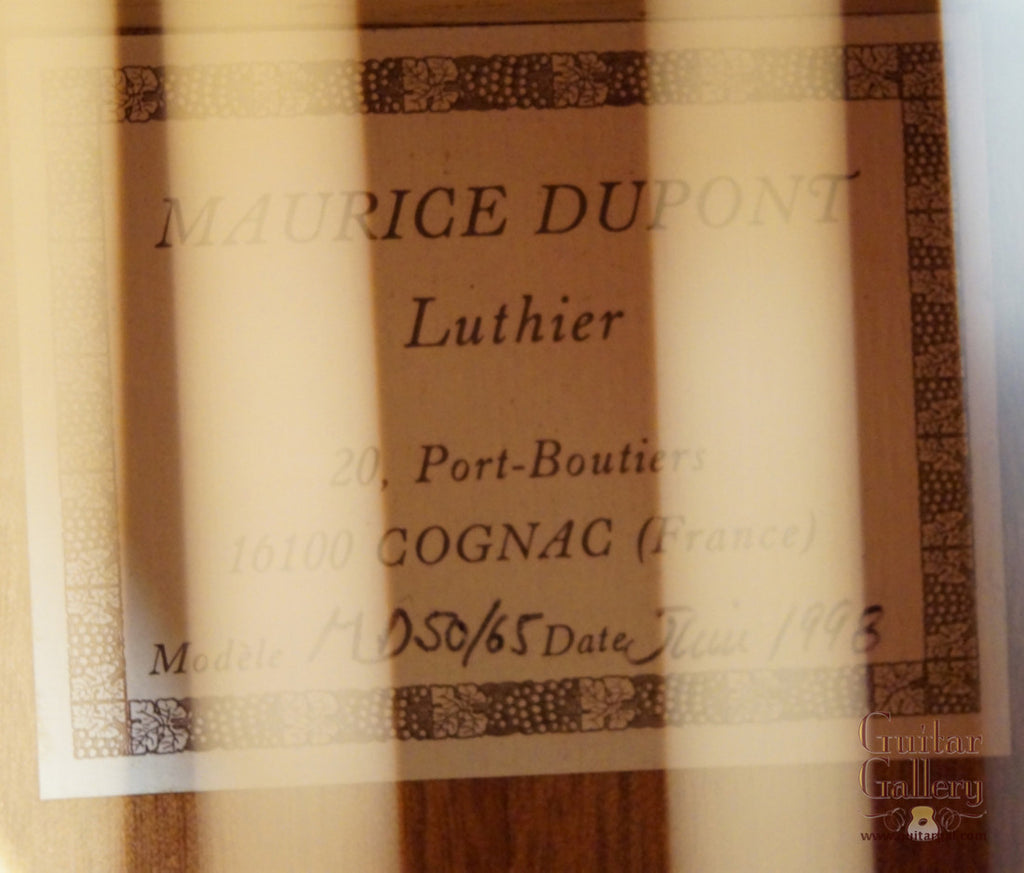 MAURICE DUPONT
Luthier
20, Port-Boutiers
16100 COGNAC (France)
Modèle MD50/65 Date Juin 1993
Guitar
Gallery